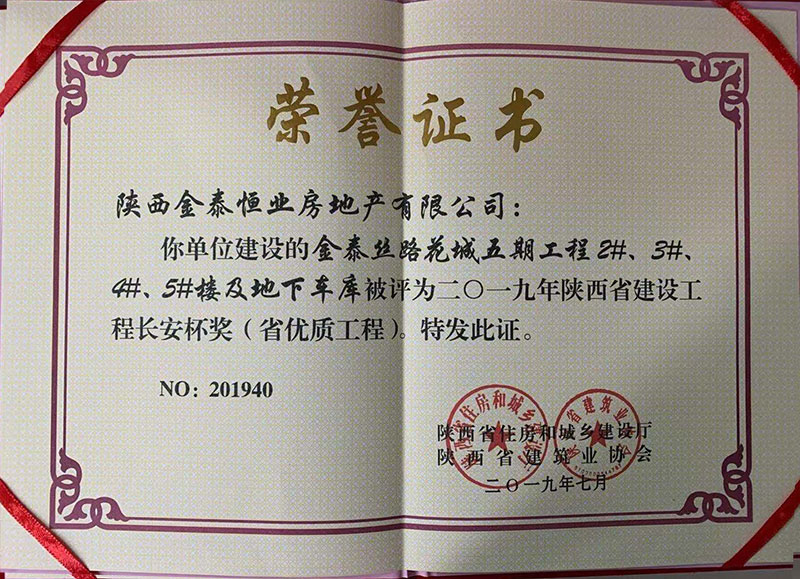 荣誉证书
陕西金泰恒业房地产有限公司：
你单位建设的金泰丝路花城五期工程2#、3#、
4#、5#楼及地下车库被评为二〇一九年陕西省建设工
程长安杯奖（省优质工程）。特发此证。
NO：201940
陕西省住房和城乡建设厅
陕西省建筑业协会
二〇一九年七月